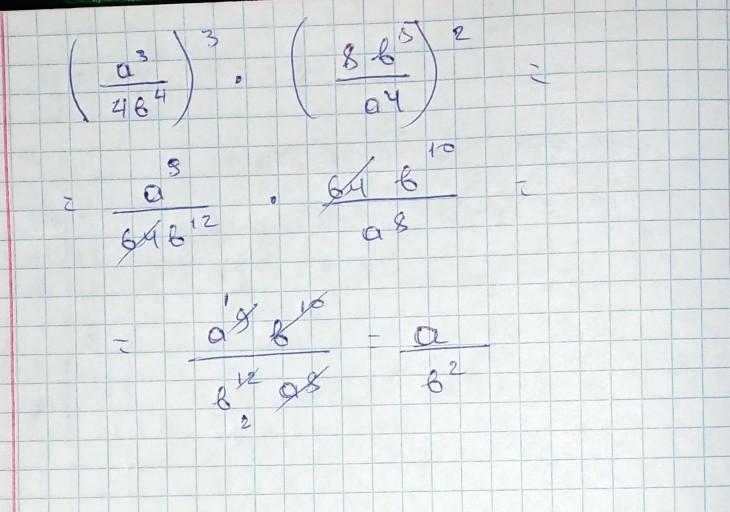 (a³/4b⁴)³ · (8b⁵/a⁴)² =
= a⁹/64b¹² · 64b¹⁰/a⁸ =
= a⁹b¹⁰/b¹²a⁸ = a/b²